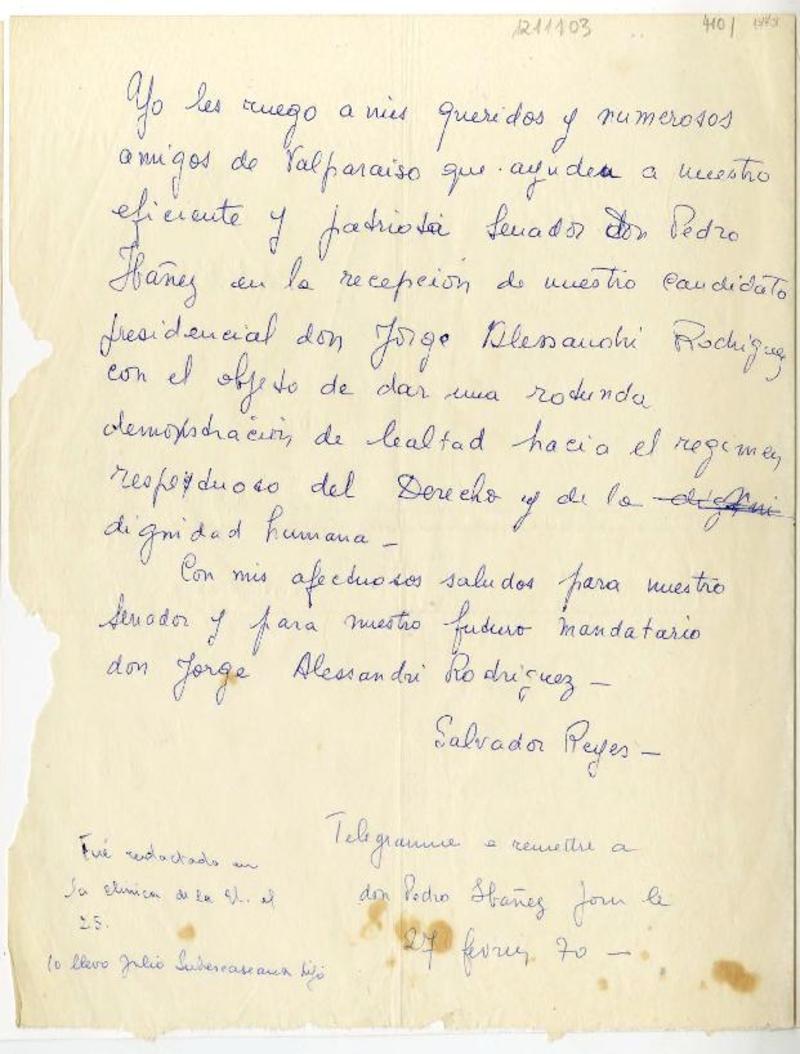 1211103
410/
Yo les ruego a mis queridos y numerosos
amigos de Valparaiso que ayuden a nuestro
eficiente y patriota Senador don Pedro
Ibáñez en la recepción de nuestro candidato
presidencial don Jorge Alessandri Rodriguez
con el objeto de dar una rotunda
demonstración de lealtad hacia el regimen
respetuoso del Derecho y de la digni
dignidad humana —
Con mis afectuosos saludos para nuestro
Senador y para nuestro futuro mandatario
don Jorge Alessandri Rodriguez —
Salvador Reyes —
Telegramme a remettre a
don Pedro Ibáñez pour le
27 fevrier 70 —
Fué redactado en
la clinica de la U. el
25.
lo llevo Julio Subercaseaux hijo